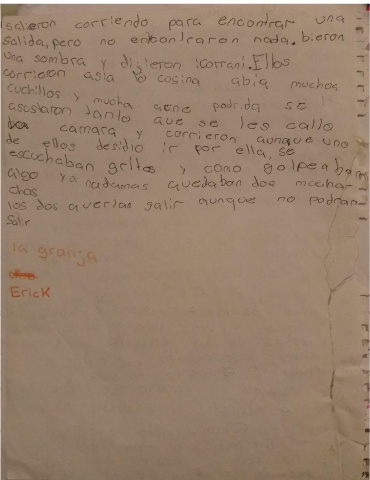 salieron corriendo para encontrar una
salida, pero no encontraron nada. bieron
una sombra y dijieron ¡corran!. Ellos
corrieron asia la cosina abia muchos
cuchillos y mucha carne podrida se
asustaron tanto que se les callo
la camara y corrieron aunque uno
de ellos desidio ir por ella, se
escuchaban gritos y como golpeaban
algo ya nadamas quedaban dos mucha-
chos
los dos querian salir aunque no podian
salir
la granja
Erick